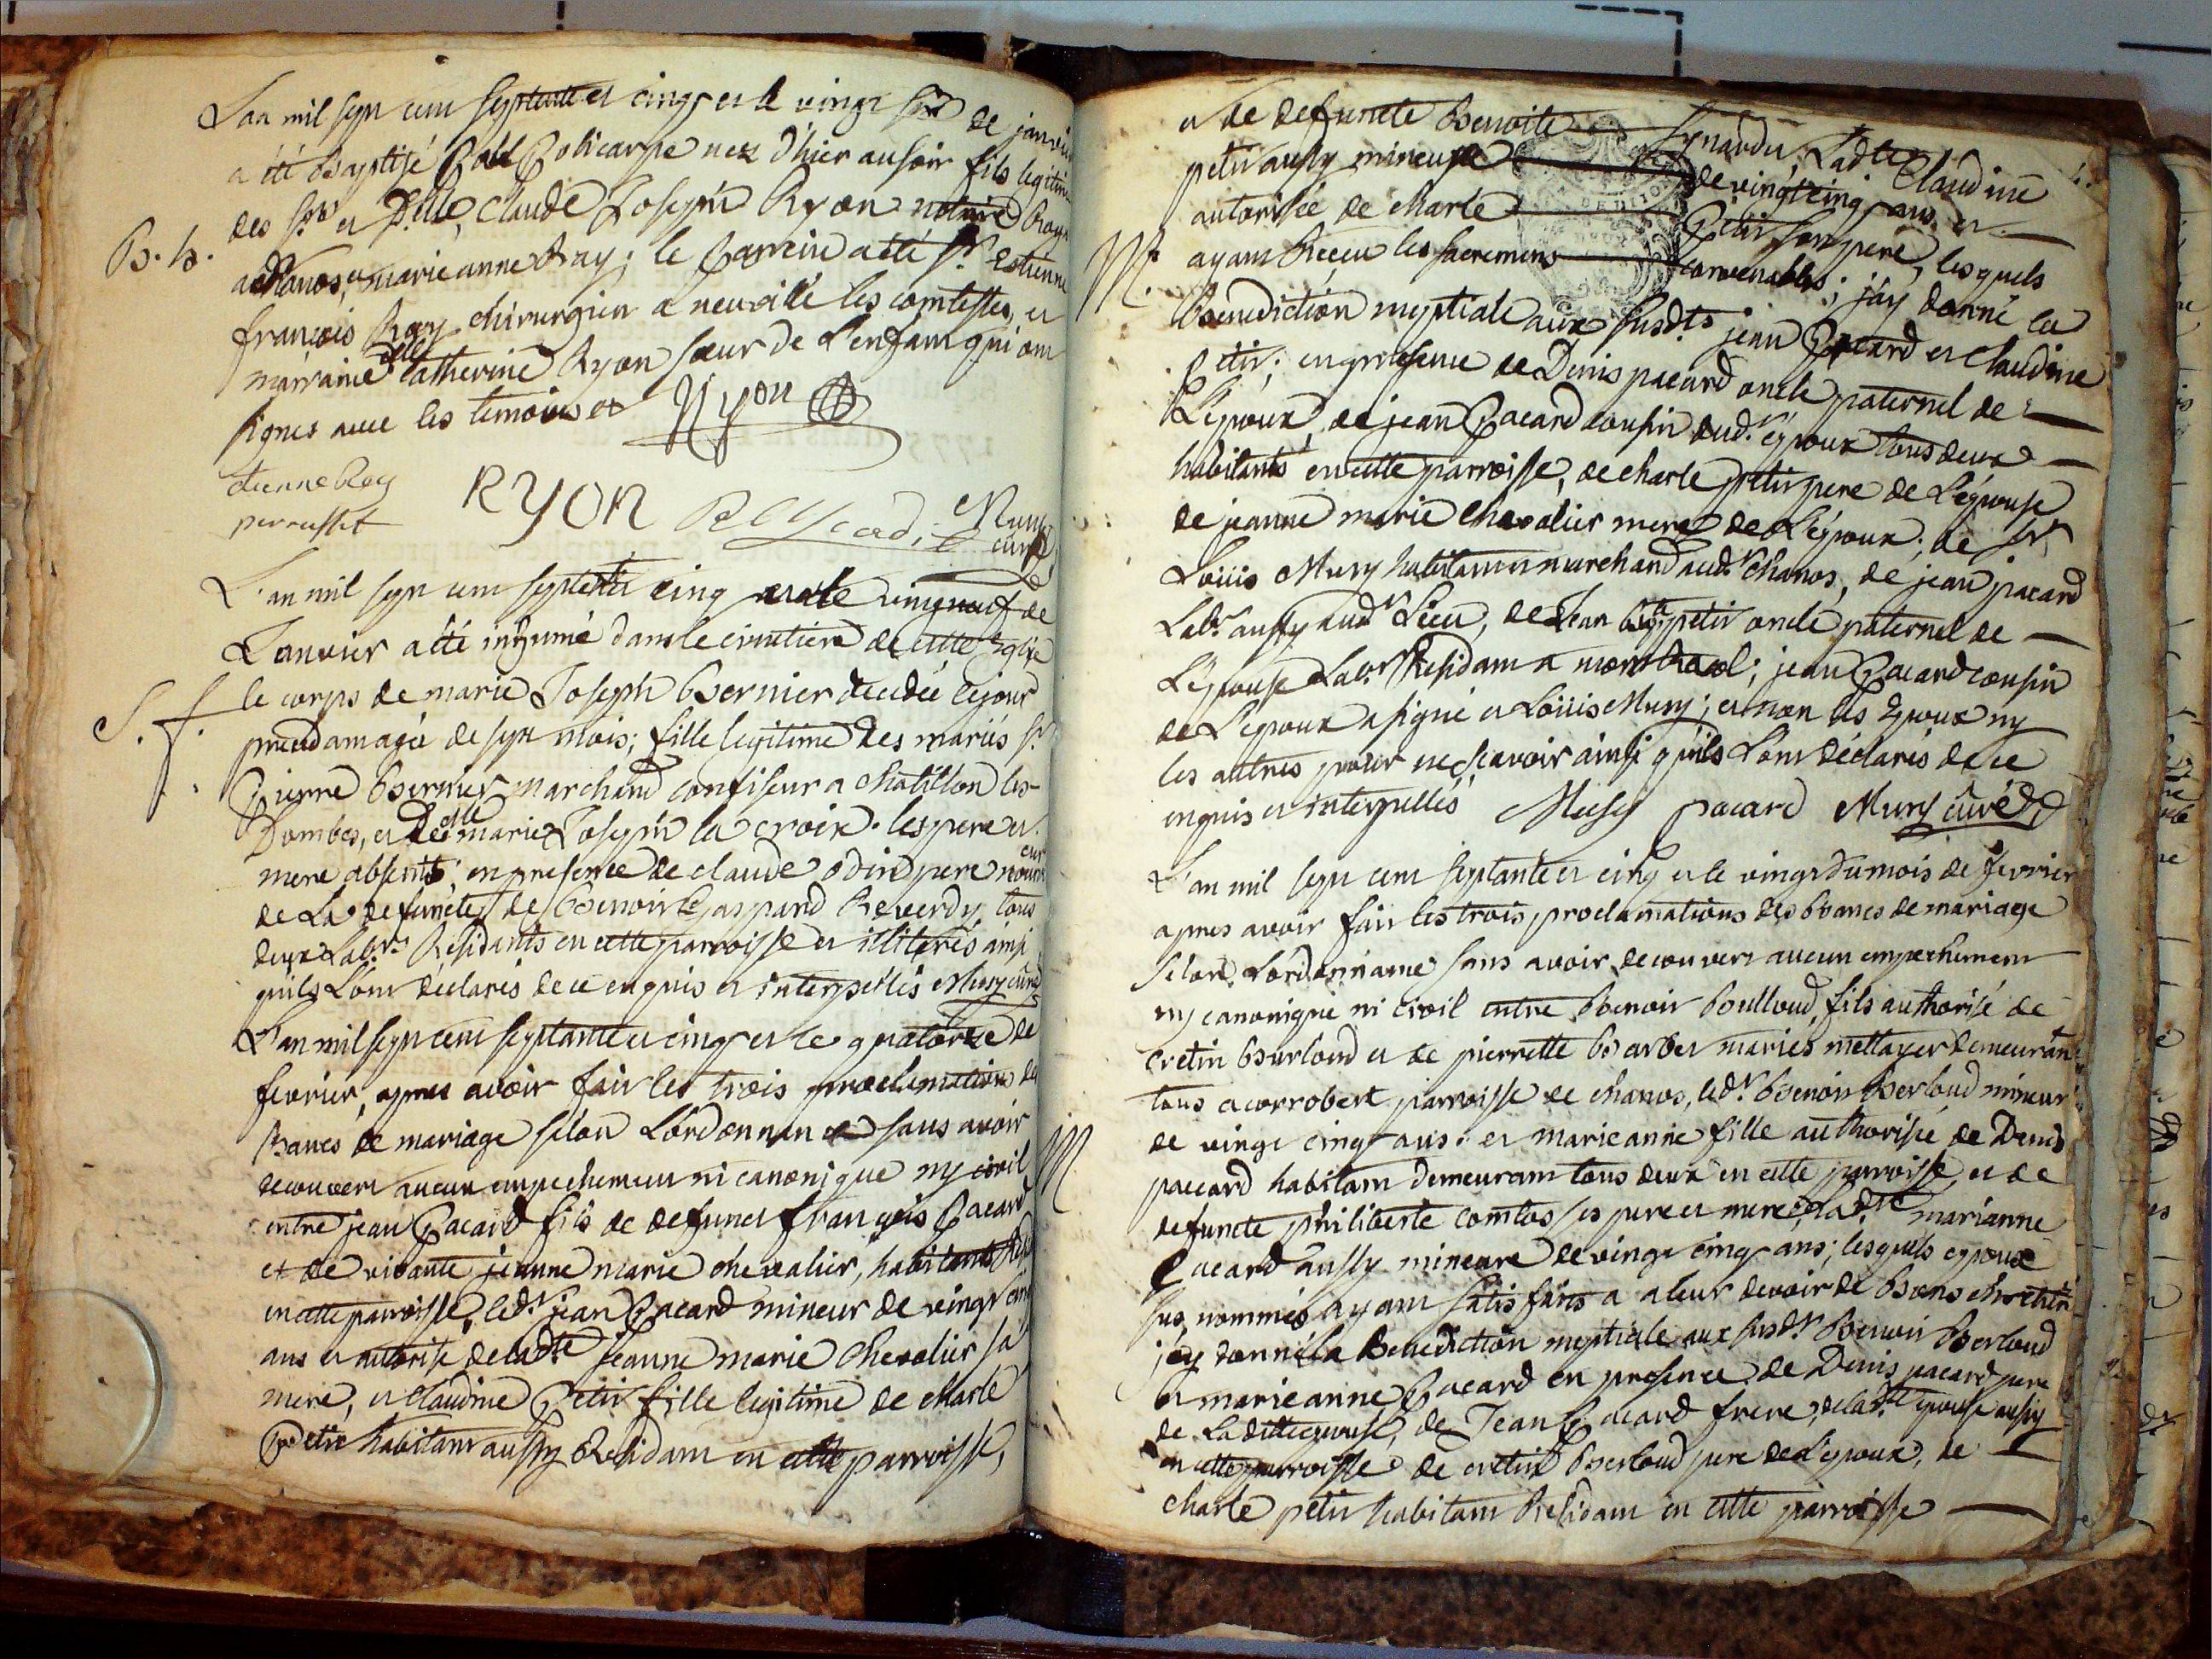 L'an mil sept cent septante et cinq et le vingt sept de janvier
a été Baptisé Policarpe nez d'hier au soir fils legitime
des Srs et Delle, Claude Joseph Ryon notaire Royal
B. b.
a Chanos, et marie anne Ray; le parrin a été Sr. Estienne
françois Ray chirurgien a neuville les comtesses, et
marraine delle Catherine Ryon sœur de L'enfant qui ont
signes avec les temoins et Ryon
étienne Ray
perrusset RYON Mury curé
L'an mil sept cent septante cinq et le vingneuf de
Janvier a été inhumé dans le cimetiere de cette Eglise
S. f.
le corps de marie Joseph Bernier decedée le jour
précédant agée de sept mois; fille legitime des mariés Sr.
Pierre Bernier marchand confiseur a Chatillon les-
Dombes, et de delle marie Joseph la croix. les pere et
mere absents; en presence de claude odin pere nourricier
de La defuncte, de Benoit Gaspard Reverdy tous
deux Labrs. Residants en cette parroisse et illiterés ainsi
quils L'ont déclarés de ce enquis et interpellés Mury curé
L'an mil sept cent septante et cinq et le quatorze de
fevrier, apres avoir fait les trois proclamations des
Bancs de mariage selon L'ordonnance sans avoir
M
decouvert aucun empechement ni canonique ny civil
entre jean Pacard fils de defunct françois Pacard
et de vivante jeanne marie chevalier, habitants
en cette parroisse, led.t jean Pacard mineur de vingt cinq
ans et autorisé de ladte jeanne marie Chevalier sa
mere, et Claudine Petit fille legitime de charle
Petit habitant aussy Residant en cette parroisse,
et de defuncte Benoite Synardet, Ladte Claudine
petit aussy mineure de vingt cinq ans et
autorisée de charle Petit son pere, lesquels
M.
ayant Receu les sacremens convenables; j'ay donné la
Benediction nuptiale aux susdts jean Pacard et Claudine
petit; en presence de Denis pacard oncle paternel de
L'epoux, de jean Pacard cousin dud.t epoux tous deux
habitants en cette parroisse, de charle petit pere de L'épouse
de jeanne marie Chevalier mere de L'époux; de Sr
Louis Mury habitant et marchand aud.t Chanos, de jean pacard
Labr. aussy aud.t Lieu, de Jean petit oncle paternel de
L'épouse Labr. Residant a montracol; jean Pacard cousin
de L'epoux a signé et Louis Mury; et non les Epoux ny
les autres pour ne sçavoir ainsi quils L'ont déclarés de ce
enquis et interpellés Mury pacard Mury curé
L'an mil sept cent septante et cinq et le vingt du mois de fevrier
apres avoir fait les trois proclamations des Bancs de mariage
selon L'ordonnance sans avoir decouvert aucun empechement
ny canonique ni civil entre Benoit Boulloud, fils authorisé de
cretin Burloud et de pierrette Barbet mariés mettayer demeurant
tous a corrobert parroisse de chanos, led.t Benoit Berloud mineur
de vingt cinq ans. et marie anne fille authorisée de Denis
paccard habitant demeurant tous deux en cette parroisse, et de
defuncte philiberte comtos ses pere et mere, ladte marianne
Pacard aussy mineure de vingt cinq ans; lesquels epoux
sus nommés ayant satisfaits a leur devoir de Bons chretiens
j'ay donné la Benediction nuptiale aux susd.ts Benoit Berloud
et marie anne Pacard en presence de Denis pacard pere
de Laditte epouse, de Jean Pacard frere, de ladte epouse aussy
en cette parroisse de cretin Berloud pere de L'epoux, de
charle petit habitant Residant en cette parroisse